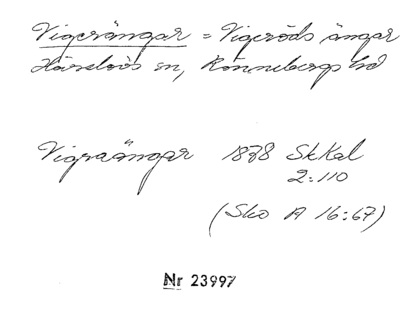 Vigerängar = Vigeröds ängar
Härslövs sn, Rönnebergs hd
Vigraängar 1878 SkKal
2:110
(Sko A 16:67)
Nr 23997